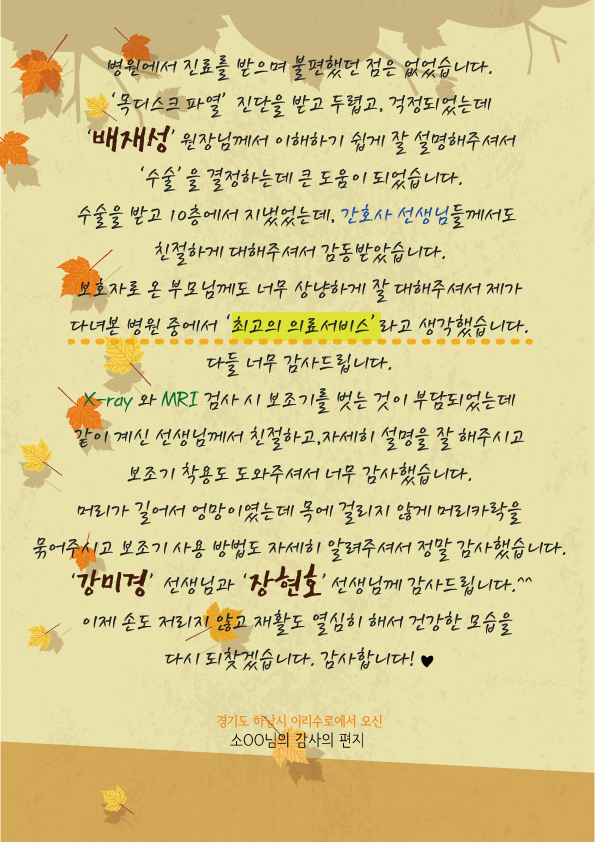 병원에서 진료를 받으며 불편했던 점은 없었습니다.
‘목디스크 파열’ 진단을 받고 두렵고, 걱정되었는데
‘배재성’ 원장님께서 이해하기 쉽게 잘 설명해주셔서
‘수술’을 결정하는데 큰 도움이 되었습니다.
수술을 받고 10층에서 지냈었는데, 간호사 선생님들께서도
친절하게 대해주셔서 감동받았습니다.
보호자로 온 부모님께도 너무 상냥하게 잘 대해주셔서 제가
다녀본 병원 중에서 ‘최고의 의료서비스’라고 생각했습니다.
다들 너무 감사드립니다.
X-ray 와 MRI 검사 시 보조기를 벗는 것이 부담되었는데
같이 계신 선생님께서 친절하고,자세히 설명을 잘 해주시고
보조기 착용도 도와주셔서 너무 감사했습니다.
머리가 길어서 엉망이였는데 목에 걸리지 않게 머리카락을
묶어주시고 보조기 사용 방법도 자세히 알려주셔서 정말 감사했습니다.
‘강미경’ 선생님과 ‘장현호’ 선생님께 감사드립니다.^^
이제 손도 저리지 않고 재활도 열심히 해서 건강한 모습을
다시 되찾겠습니다. 감사합니다! ♥
경기도 하남시 이리수로에서 오신
소OO님의 감사의 편지